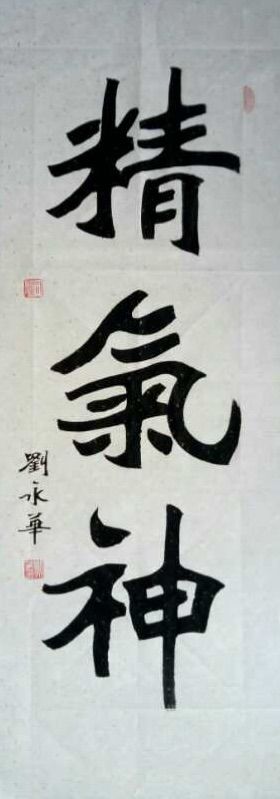 精氣神
劉永華